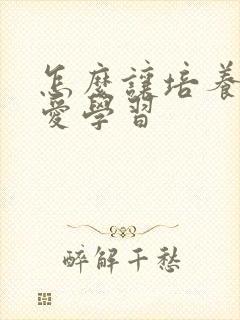 怎麼讓培養
愛學習
醉解千愁